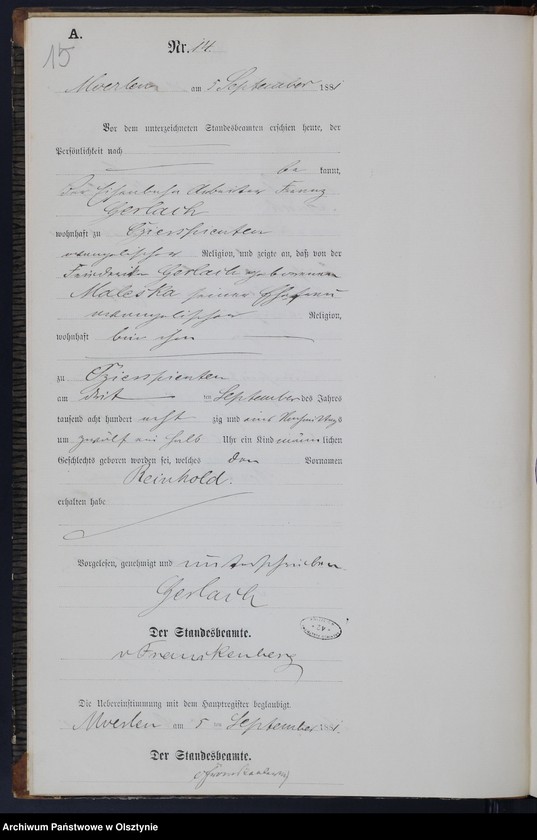 A.
15
Nr. 14.
am 5 September 1881
Vor dem unterzeichneten Standesbeamten erschien heute, der
Persönlichkeit nach
be kannt,
der Eisenbahn Arbeiter Franz
Gerlach
wohnhaft zu
evangelischer Religion, und zeigte an, daß von der
Friederike Gerlach geborenen
Maleska seiner Ehefrau
evangelischer Religion,
wohnhaft bei ihm
zu
am dritten September des Jahres
tausend acht hundert acht zig und eins Vormittags
um zwölf ein halb Uhr ein Kind männlichen
Geschlechts geboren worden sei, welches den Vornamen
Reinhold.
erhalten habe
Vorgelesen, genehmigt und unterschrieben
Gerlach
Der Standesbeamte.
v Franckenberg
Die Uebereinstimmung mit dem Hauptregister beglaubigt.
am 5 ten September 1881.
Der Standesbeamte.
Archiwum Państwowe w Olsztynie